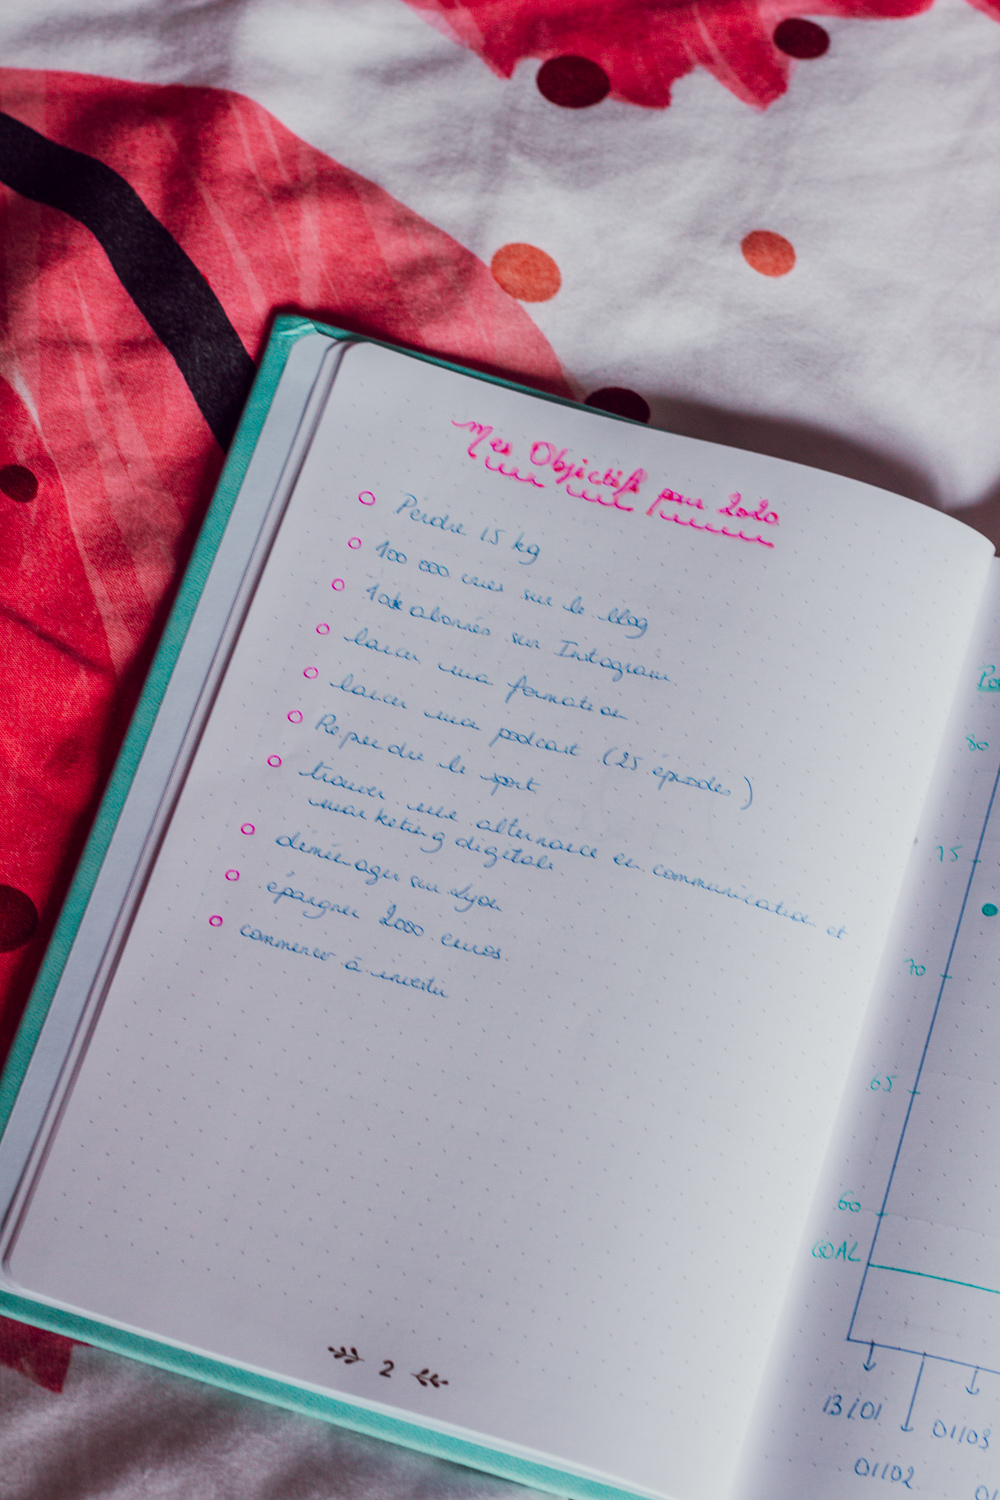 Mes Objectifs pour 2020
Perdre 15 kg
100 000 vues sur le blog
10k abonnés sur Instagram
lancer ma formation
lancer mon podcast (25 épisodes)
Reprendre le sport
trouver une alternance en communication et
marketing digitale
déménager sur Lyon
épargner 2000 euros
commencer à investir
2
80
75
70
65
60
GOAL
13/01
01/02
01/03